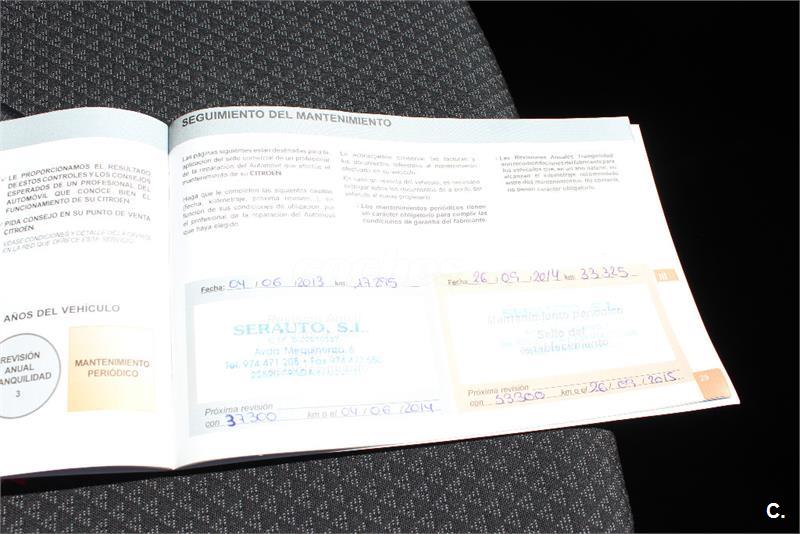 LE PROPORCIONAMOS EL RESULTADO
DE ESTOS CONTROLES Y LOS CONSEJOS
ESPERADOS DE UN PROFESIONAL DEL
AUTOMÓVIL QUE CONOCE BIEN EL
FUNCIONAMIENTO DE SU CITROËN.
PIDA CONSEJO EN SU PUNTO DE VENTA
CITROËN.
AÑOS DEL VEHÍCULO
REVISIÓN
ANUAL
TRANQUILIDAD
3
MANTENIMIENTO
PERIÓDICO
SEGUIMIENTO DEL MANTENIMIENTO
Las páginas siguientes están destinadas para la
aplicación del sello comercial de un profesional
de la reparación del Automóvil que efectúe el
mantenimiento de su CITROËN.
Haga que le completen las siguientes casillas
(fecha, kilometraje, próxima revisión...), en
función de sus condiciones de utilización, por
el profesional de la reparación del Automóvil
que haya elegido.
Le aconsejamos conservar las facturas y
los documentos referentes al mantenimiento
efectuado en su vehículo.
En caso de reventa del vehículo, es necesario
entregar todos los documentos de a bordo del
vehículo al nuevo propietario.
- Los mantenimientos periódicos tienen
un carácter obligatorio para cumplir las
condiciones de garantía del fabricante.
- Las Revisiones Anuales Tranquilidad
son recomendaciones del fabricante para
los vehículos que, en un año natural, no
alcanzan el kilometraje recomendado
entre dos mantenimientos. No obstante,
no tienen carácter obligatorio.
Fecha: 04 / 06 / 2013 km: 17295
Revisión Anual
SERAUTO, S.L.
Avda. Mequinenza, 6
Tel. 974 471 208 • Fax 974
Próxima revisión
con 37300 km o el 04 / 06 / 2014
Fecha: 26 / 09 / 2014 km: 33325
Mantenimiento periódico
Sello del
establecimiento
Próxima revisión
con 53300 km o el 26 / 09 / 2015
III
29
C.